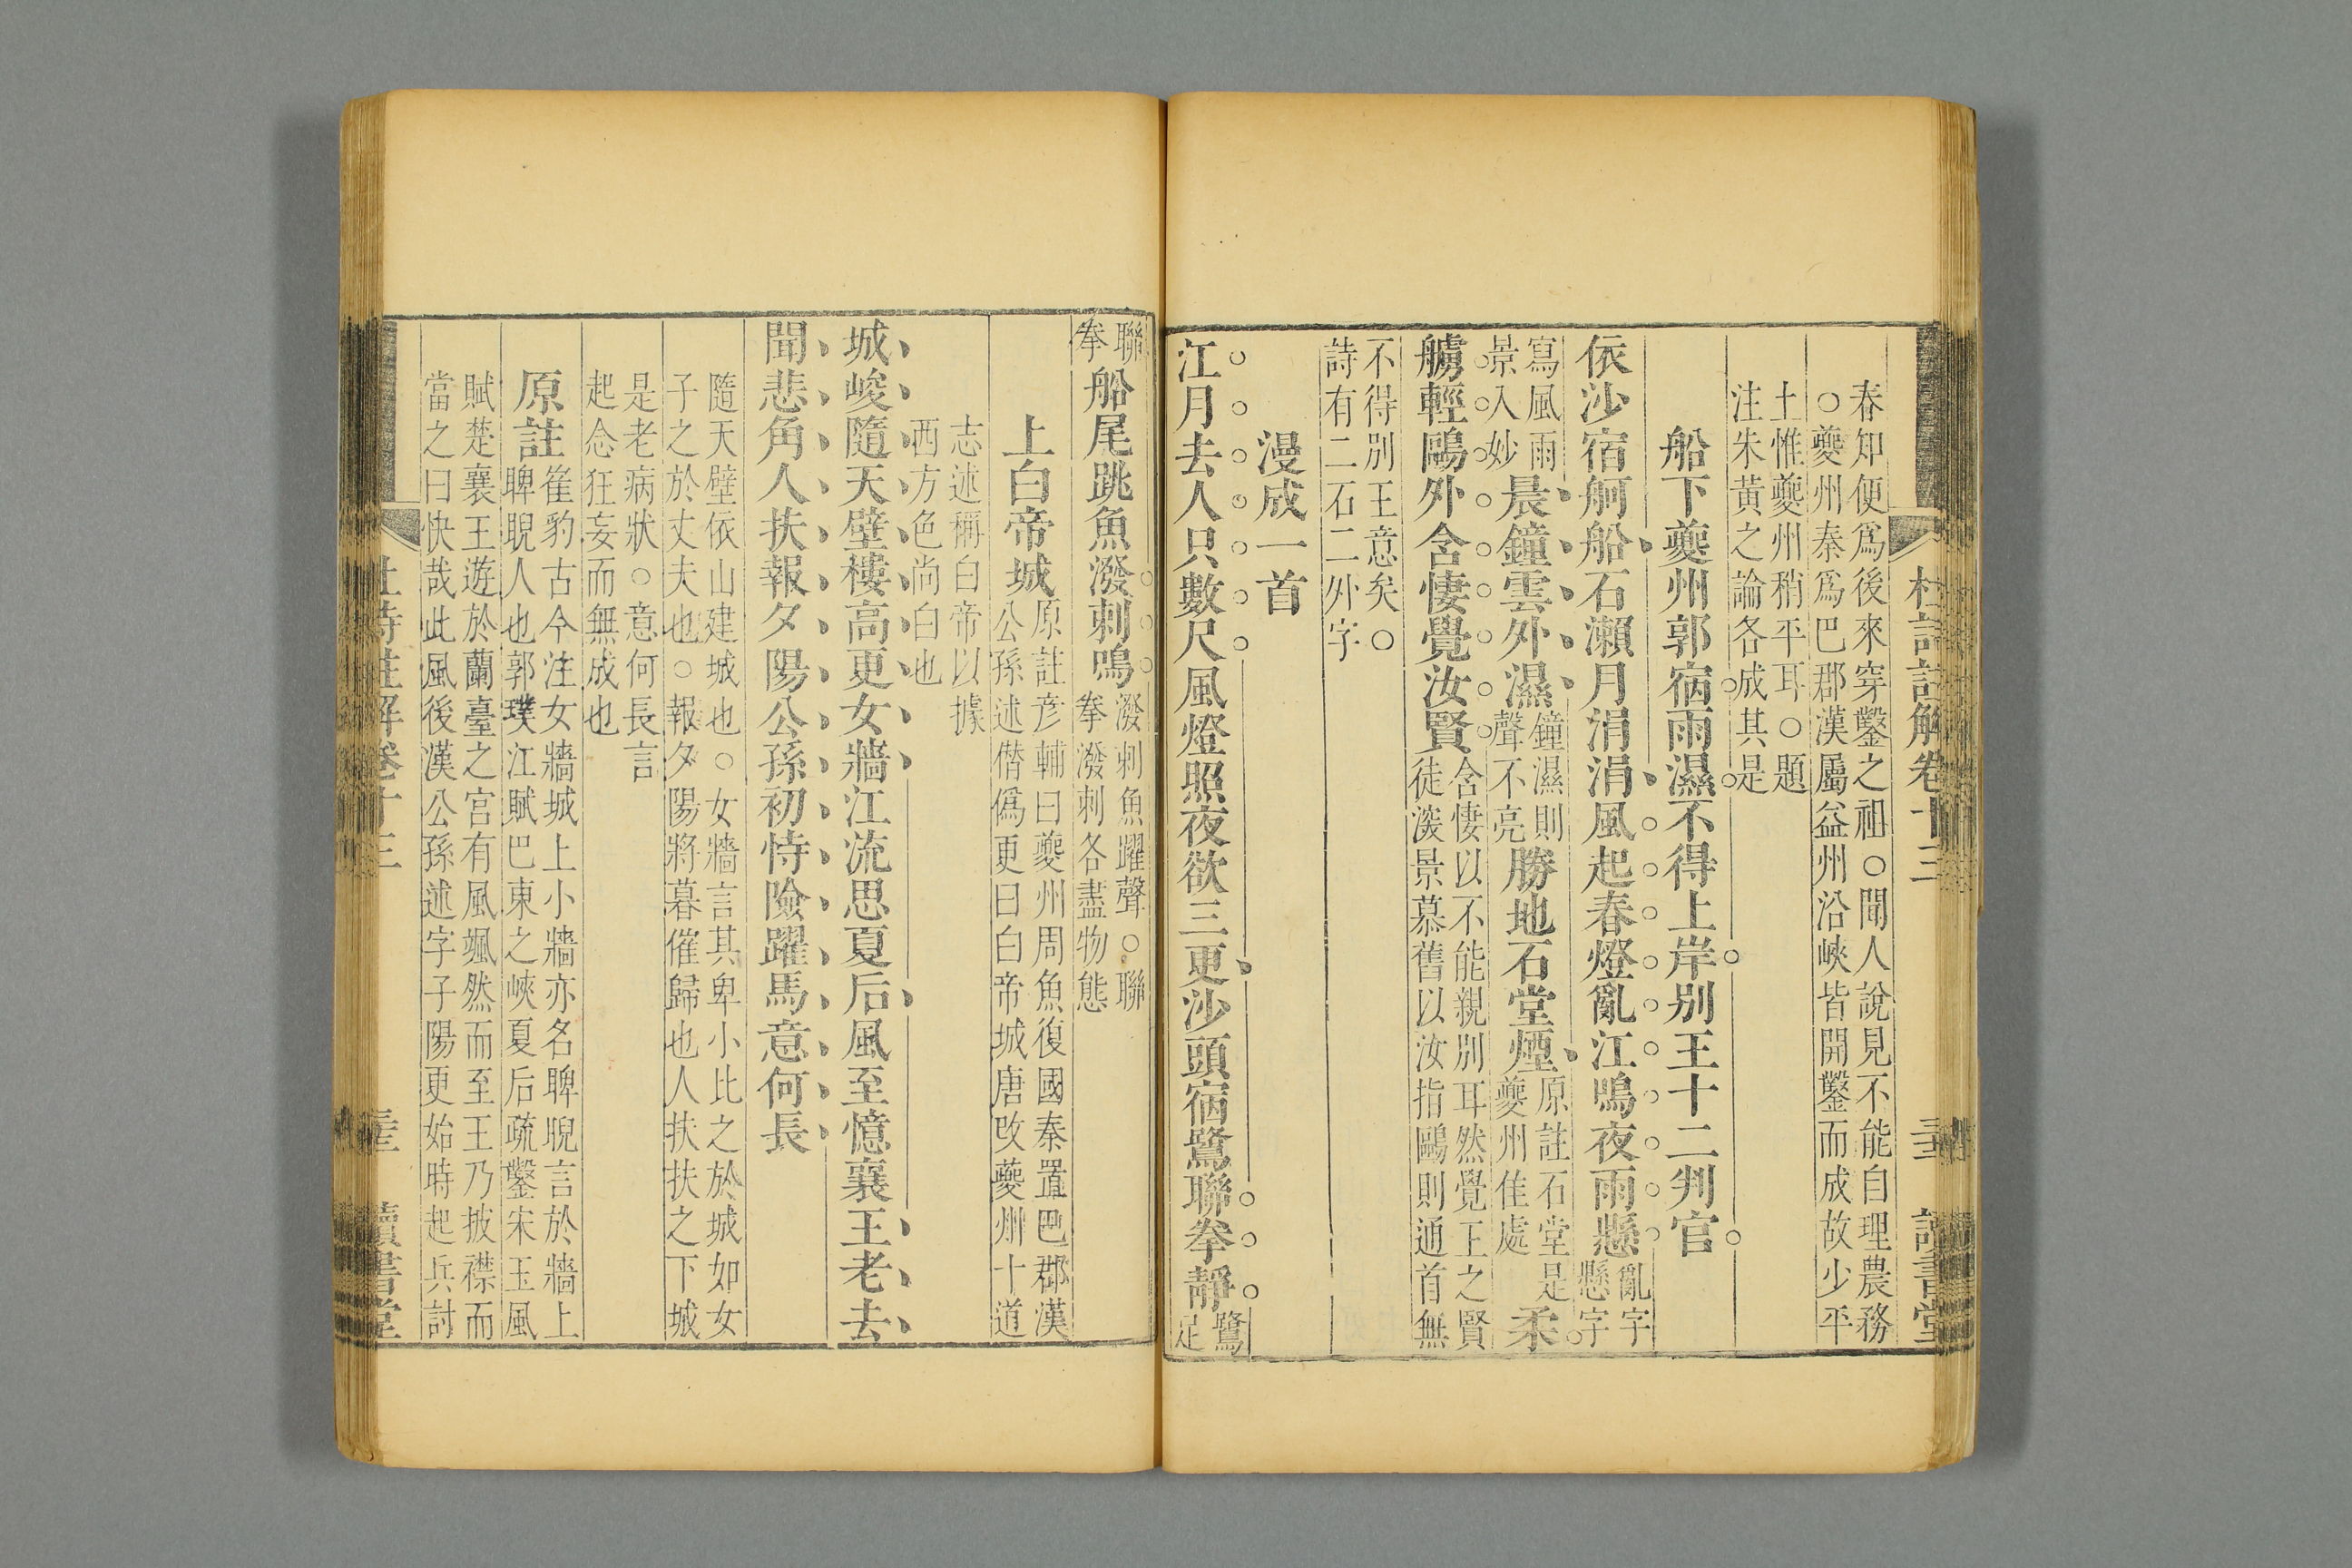 杜詩註解卷十三 讀書堂
春知便爲後來穿鑿之祖○聞人說見不能自理農務
○夔州秦爲巴郡漢屬益州沿峽皆開鑿而成故少平
土惟夔州稍平耳○題
注朱黃之論各成其是
船下夔州郭宿雨濕不得上岸別王十二判官
依沙宿舸船石瀨月涓涓風起春燈亂江鳴夜雨懸
亂字
懸字
寫風雨
景入妙
晨鐘雲外濕
鐘濕則
聲不亮
勝地石堂煙
原註石堂是
夔州佳處
柔
艣輕鷗外含悽覺汝賢
含悽以不能親別耳然覺王之賢
徒淡景慕舊以汝指鷗則通首無
不得別王意矣○
詩有二石二外字
漫成一首
江月去人只數尺風燈照夜欲三更沙頭宿鷺聯拳靜
鷺
足
聯
拳
船尾跳魚潑刺鳴
潑刺魚躍聲○聯
拳潑刺各盡物態
上白帝城
原註彥輔曰夔州周魚復國秦置巴郡漢
公孫述僭僞更曰白帝城唐改夔州十道
志述稱白帝以據
西方色尚白也
城峻隨天壁樓高更女牆江流思夏后風至憶襄王老去
聞悲角人扶報夕陽公孫初恃險躍馬意何長
隨天壁依山建城也○女牆言其卑小比之於城如女
子之於丈夫也○報夕陽將暮催歸也人扶扶之下城
是老病狀○意何長言
起念狂妄而無成也
原註
崔豹古今注女牆城上小牆亦名睥睨言於牆上
睥睨人也郭璞江賦巴東之峽夏后疏鑿宋玉風
賦楚襄王遊於蘭臺之宮有風颯然而至王乃披襟而
當之曰快哉此風後漢公孫述字子陽更始時起兵討
杜詩註解卷十三 讀書堂